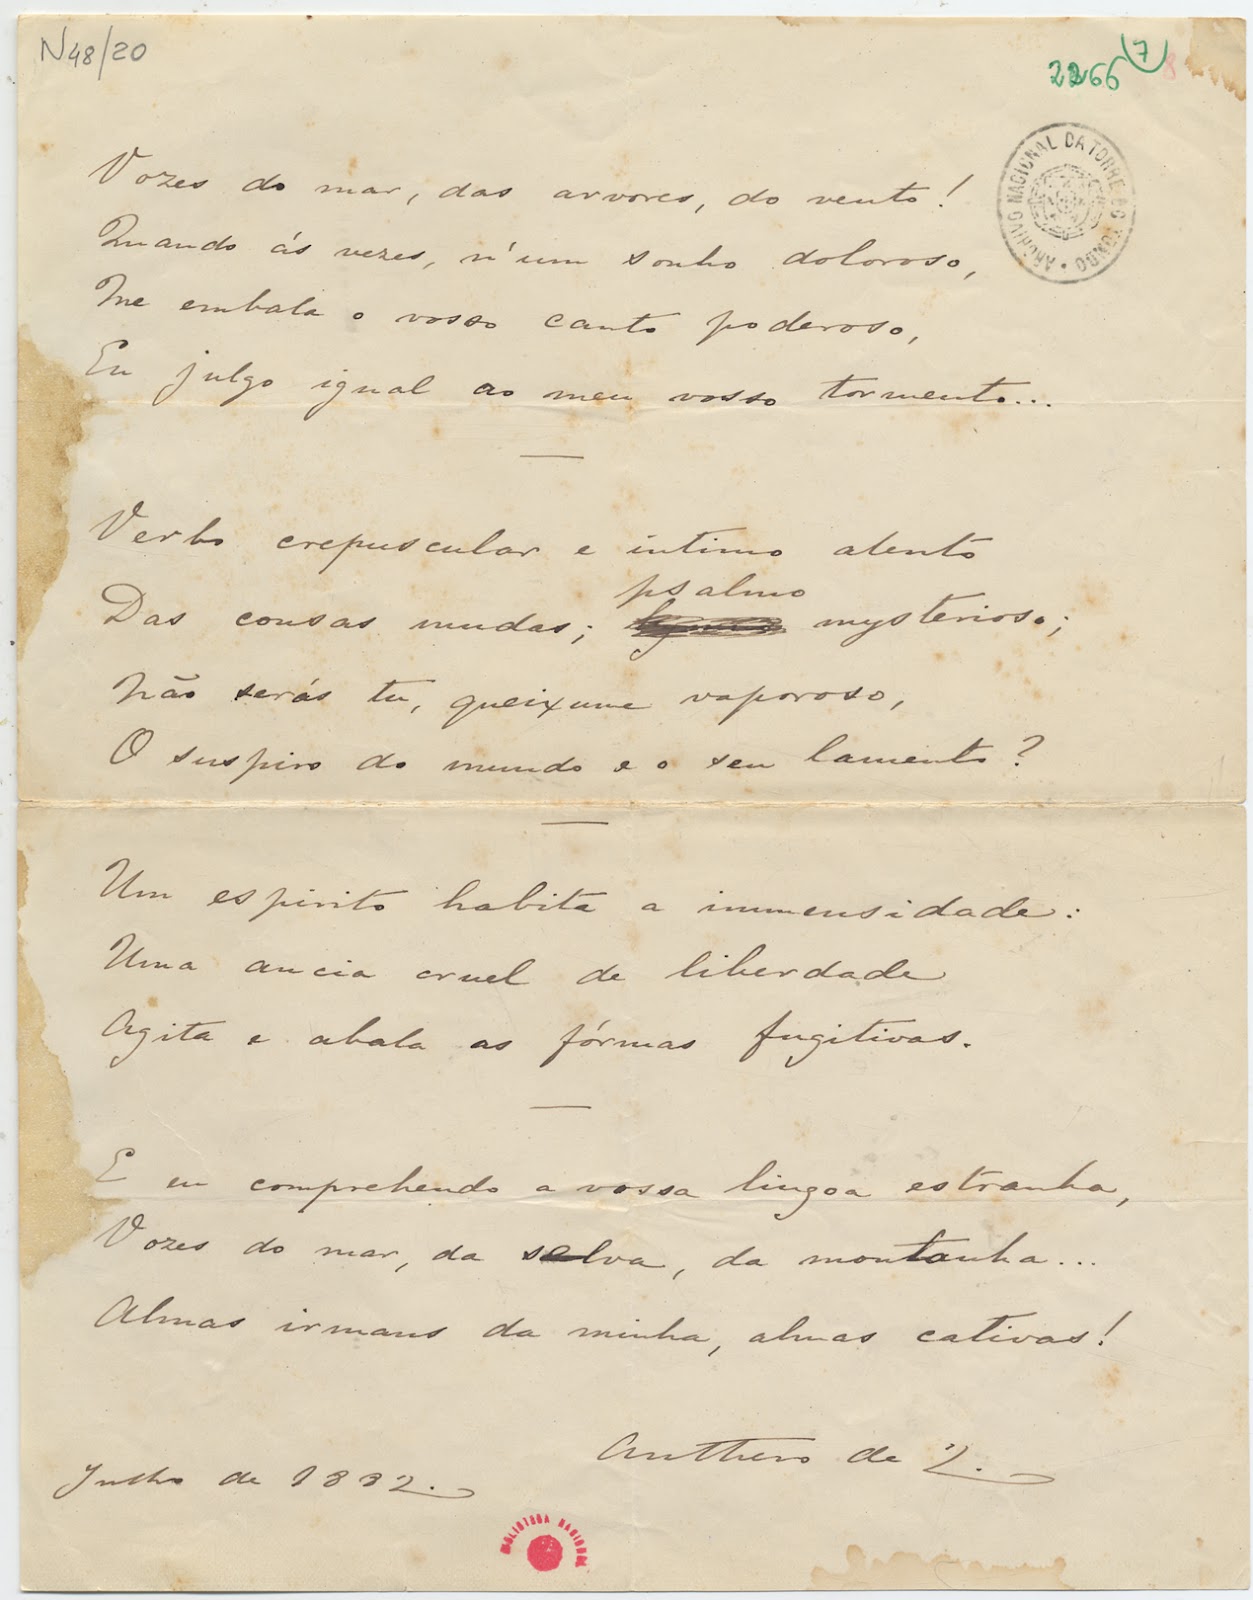 N48/20
2266 (7)
8
ARCHIVO NACIONAL DA TORRE DO TOMBO
Vozes do mar, das arvores, do vento!
Quando ás vezes, n'um sonho doloroso,
Me embala o vosso canto poderoso,
Eu julgo igual ao meu vosso tormento...
Verbo crepuscular e intimo alento
psalmo
Das cousas mudas; mysterioso;
Não serás tu, queixume vaporoso,
O suspiro do mundo e o seu lamento?
Um espirito habita a immensidade:
Uma ancia cruel de liberdade
Agita e abala as fórmas fugitivas.
E eu comprehendo a vossa lingoa estranha,
Vozes do mar, da selva, da montanha...
Almas irmans da minha, almas cativas!
Anthero de Q.
Julho de 1882.
BIBLIOTECA NACIONAL